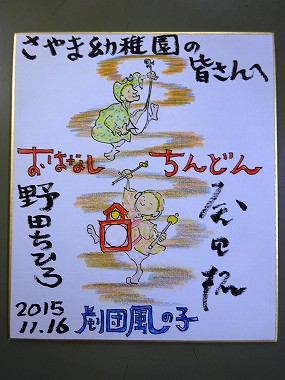 さやま幼稚園の
皆さんへ
おはなし ちんどん
野田ちひろ
2015
11.16
劇団風の子